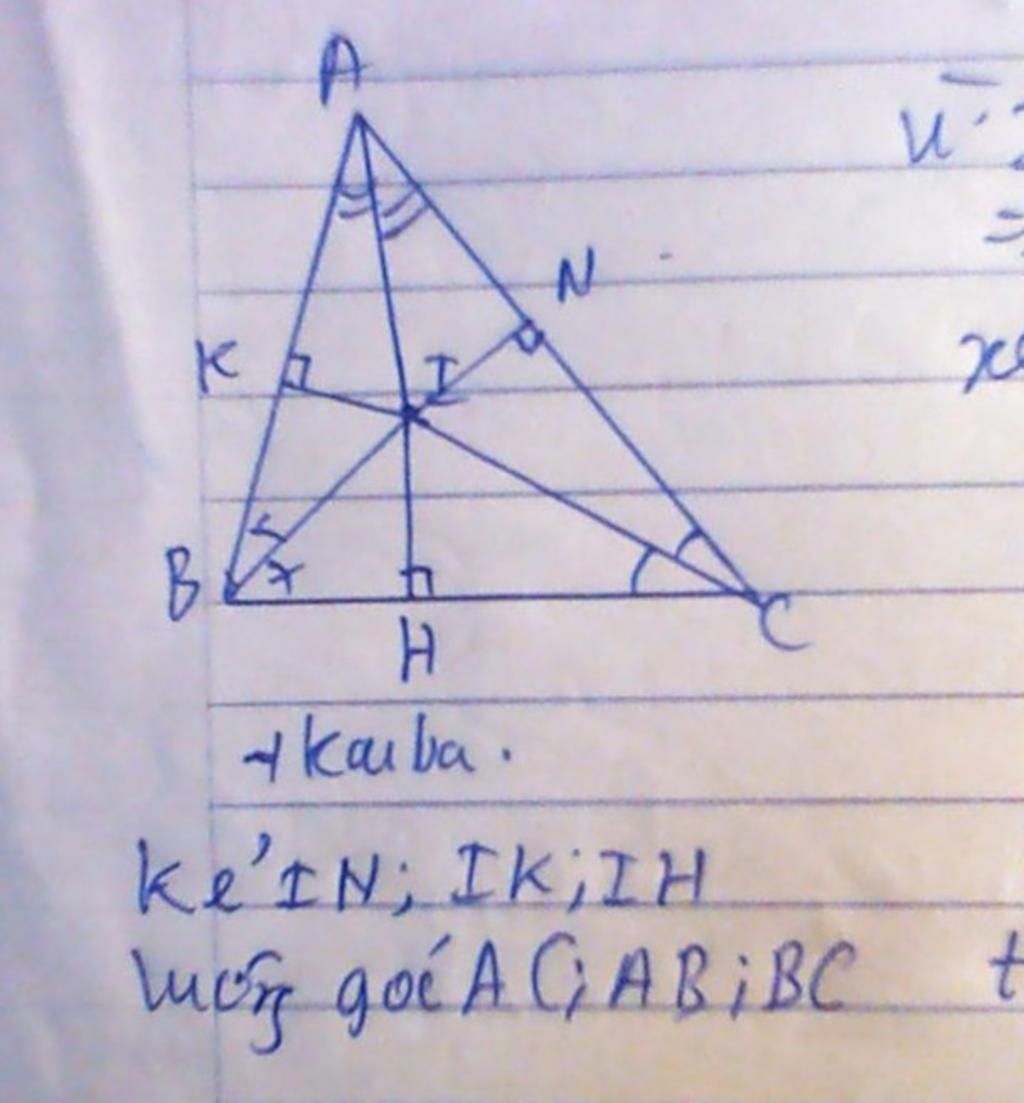 A
N
K
I
B
H
C
+ Kaiba.
Kẻ IN; IK; IH
vuông góc AC; AB; BC